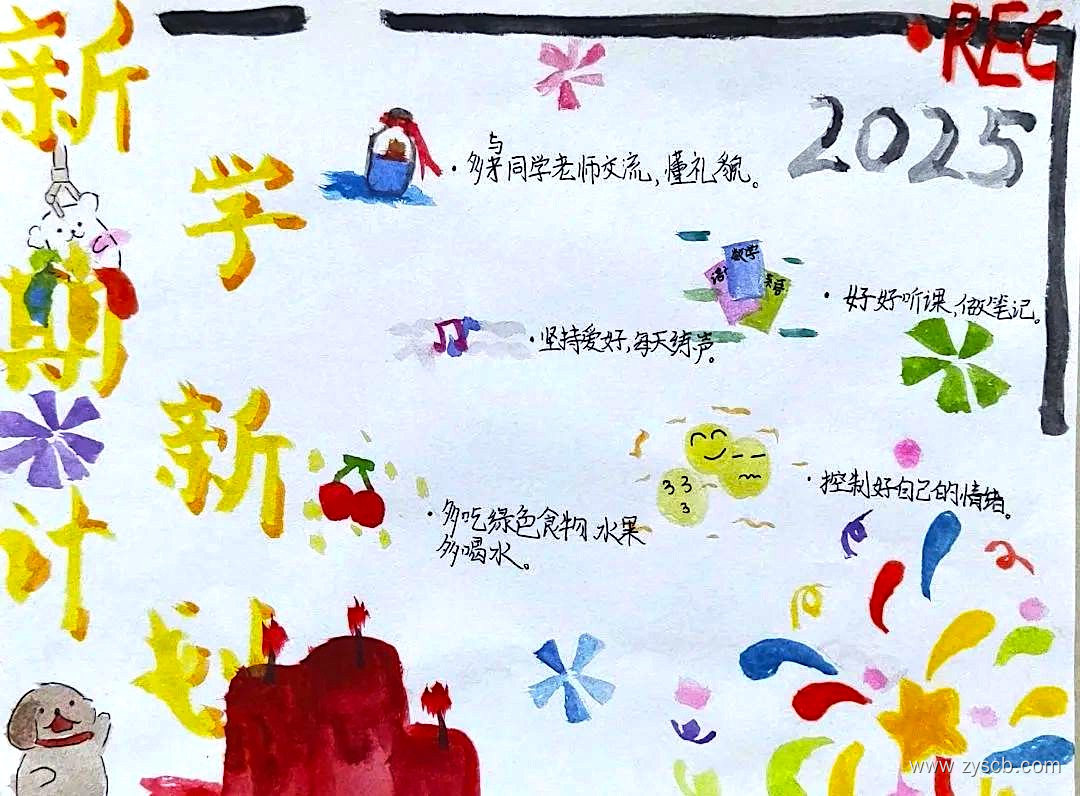 新学期新计划
REC
2025
·多与同学老师交流,懂礼貌。
数学
·好好听课,做笔记。
·坚持爱好,每天练声。
·控制好自己的情绪。
·多吃绿色食物、水果
多喝水。
www.zyscb.com